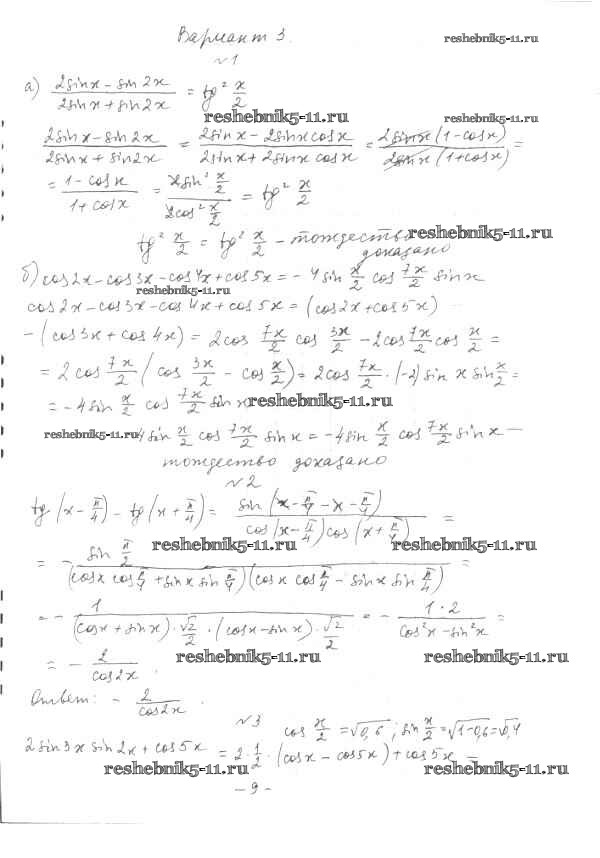 Вариант 3.
reshebnik5-11.ru
№1
а) (2sinx - sin2x)/(2sinx + sin2x) = tg² x/2
reshebnik5-11.ru
reshebnik5-11.ru
(2sinx - sin2x)/(2sinx + sin2x) = (2sinx - 2sinxcosx)/(2sinx + 2sinx cosx) = (2sinx(1-cosx))/(2sinx(1+cosx)) =
= (1 - cosx)/(1 + cosx) = (2sin² x/2)/(2cos² x/2) = tg² x/2
reshebnik5-11.ru
tg² x/2 = tg² x/2 - тождество
доказано
б) cos2x - cos3x - cos4x + cos5x = - 4sin x/2 cos 7x/2 sinx
reshebnik5-11.ru
cos2x - cos3x - cos4x + cos5x = (cos2x + cos5x)
- (cos3x + cos4x) = 2cos 7x/2 cos 3x/2 - 2cos 7x/2 cos x/2 =
= 2cos 7x/2 (cos 3x/2 - cos x/2) = 2cos 7x/2 · (-2) sin x sin x/2 =
= - 4sin x/2 cos 7x/2 sinx
reshebnik5-11.ru
reshebnik5-11.ru
4sin x/2 cos 7x/2 sinx = -4sin x/2 cos 7x/2 sinx —
тождество доказано
№2
tg(x - π/4) - tg(x + π/4) = sin(x - π/4 - x - π/4)/(cos(x - π/4)cos(x + π/4)) =
reshebnik5-11.ru
reshebnik5-11.ru
= - sin π/2/((cosx cos π/4 + sinx sin π/4)(cosx cos π/4 - sinx sin π/4)) =
= - 1/((cosx + sinx)·√2/2 · (cosx - sinx)·√2/2) = - (1·2)/(cos²x - sin²x) =
reshebnik5-11.ru
reshebnik5-11.ru
= - 2/cos2x
Ответ: - 2/cos2x.
№3
cos x/2 = √0,6; sin x/2 = √1-0,6 = √0,4
2sin3x sin2x + cos5x = 2·1/2·(cosx - cos5x) + cos5x =
reshebnik5-11.ru
reshebnik5-11.ru
- 9 -